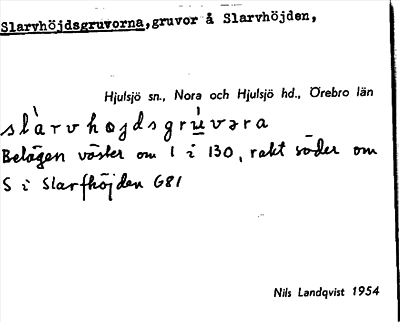 Slarvhöjdsgruvorna, gruvor å Slarvhöjden,
Hjulsjö sn., Nora och Hjulsjö hd., Örebro län
slàrvhøjdsgrúvəra
Belägen väster om 1 i 130, rakt söder om
S i Slarfhöjden G81
Nils Landqvist 1954